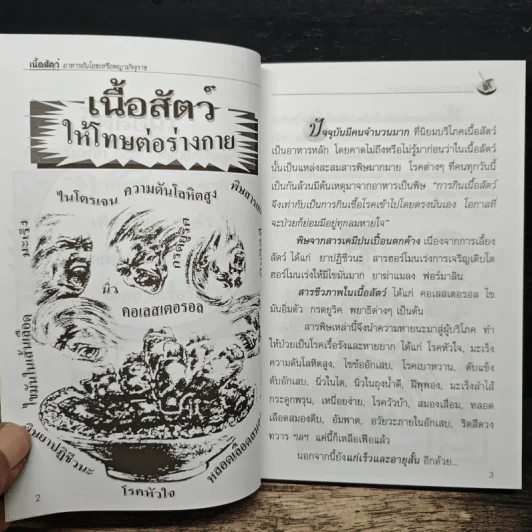 เนื้อสัตว์ อาหารอันโอชะหรือพญามัจจุราช
เนื้อสัตว์
ให้โทษต่อร่างกาย
ไนโตรเจน
ความดันโลหิตสูง
มะเร็ง
กรดยูริค
นิ่ว
คอเลสเตอรอล
ไขมันในเส้นเลือด
โรคหัวใจ
2
ปัจจุบันมีคนจำนวนมาก ที่นิยมบริโภคเนื้อสัตว์
เป็นอาหารหลัก โดยคาดไม่ถึงหรือไม่รู้มาก่อนว่าในเนื้อสัตว์
นั้นเป็นแหล่งสะสมสารพิษมากมาย โรคต่างๆ ที่คนทุกวันนี้
เป็นกันล้วนมีต้นเหตุมาจากอาหารเป็นพิษ "การกินเนื้อสัตว์
จึงเท่ากับเป็นการกินเชื้อโรคเข้าไปโดยตรงนั่นเอง โอกาสที่
จะป่วยก็ย่อมมีอยู่ทุกลมหายใจ"
พิษจากสารเคมีปนเปื้อนตกค้าง เนื่องจากการเลี้ยง
สัตว์ ได้แก่ ยาปฏิชีวนะ สารฮอร์โมนเร่งการเจริญเติบโต
ฮอร์โมนเร่งให้มีไขมันมาก ยาฆ่าแมลง ฟอร์มาลิน
สารชีวภาพในเนื้อสัตว์ ได้แก่ คอเลสเตอรอล ไข
มันอิ่มตัว กรดยูริค พยาธิต่างๆ เป็นต้น
สารพิษเหล่านี้จึงนำความหายนะมาสู่ผู้บริโภค ทำ
ให้ป่วยเป็นโรคเรื้อรังและหายยาก ได้แก่ โรคหัวใจ, มะเร็ง
ความดันโลหิตสูง, ไขข้ออักเสบ, โรคเบาหวาน, ตับแข็ง
ตับอักเสบ, นิ่วในไต, นิ่วในถุงน้ำดี, ฝีพุพอง, มะเร็งลำไส้
กระดูกพรุน, เหนื่อยง่าย, โรควัวบ้า, สมองเสื่อม, หลอด
เลือดสมองตีบ, อัมพาต, อวัยวะภายในอักเสบ, ริดสีดวง
ทวาร ฯลฯ แค่นี้ก็เหลือเฟือแล้ว
นอกจากนี้ยังแก่เร็วและอายุสั้น อีกด้วย...
3